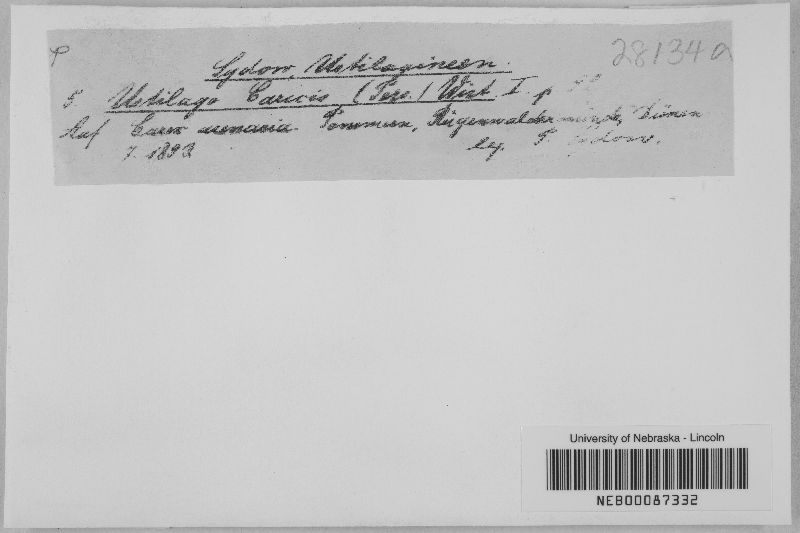 28134a
Sydow, Ustilagineen.
5. Ustilago Caricis (Pers.) Wint. I. p
Auf Carex arenaria. Pommern, Rügenwaldermünde, Dünen
7. 1893
leg. P. Sydow.
University of Nebraska - Lincoln
NEB00087332